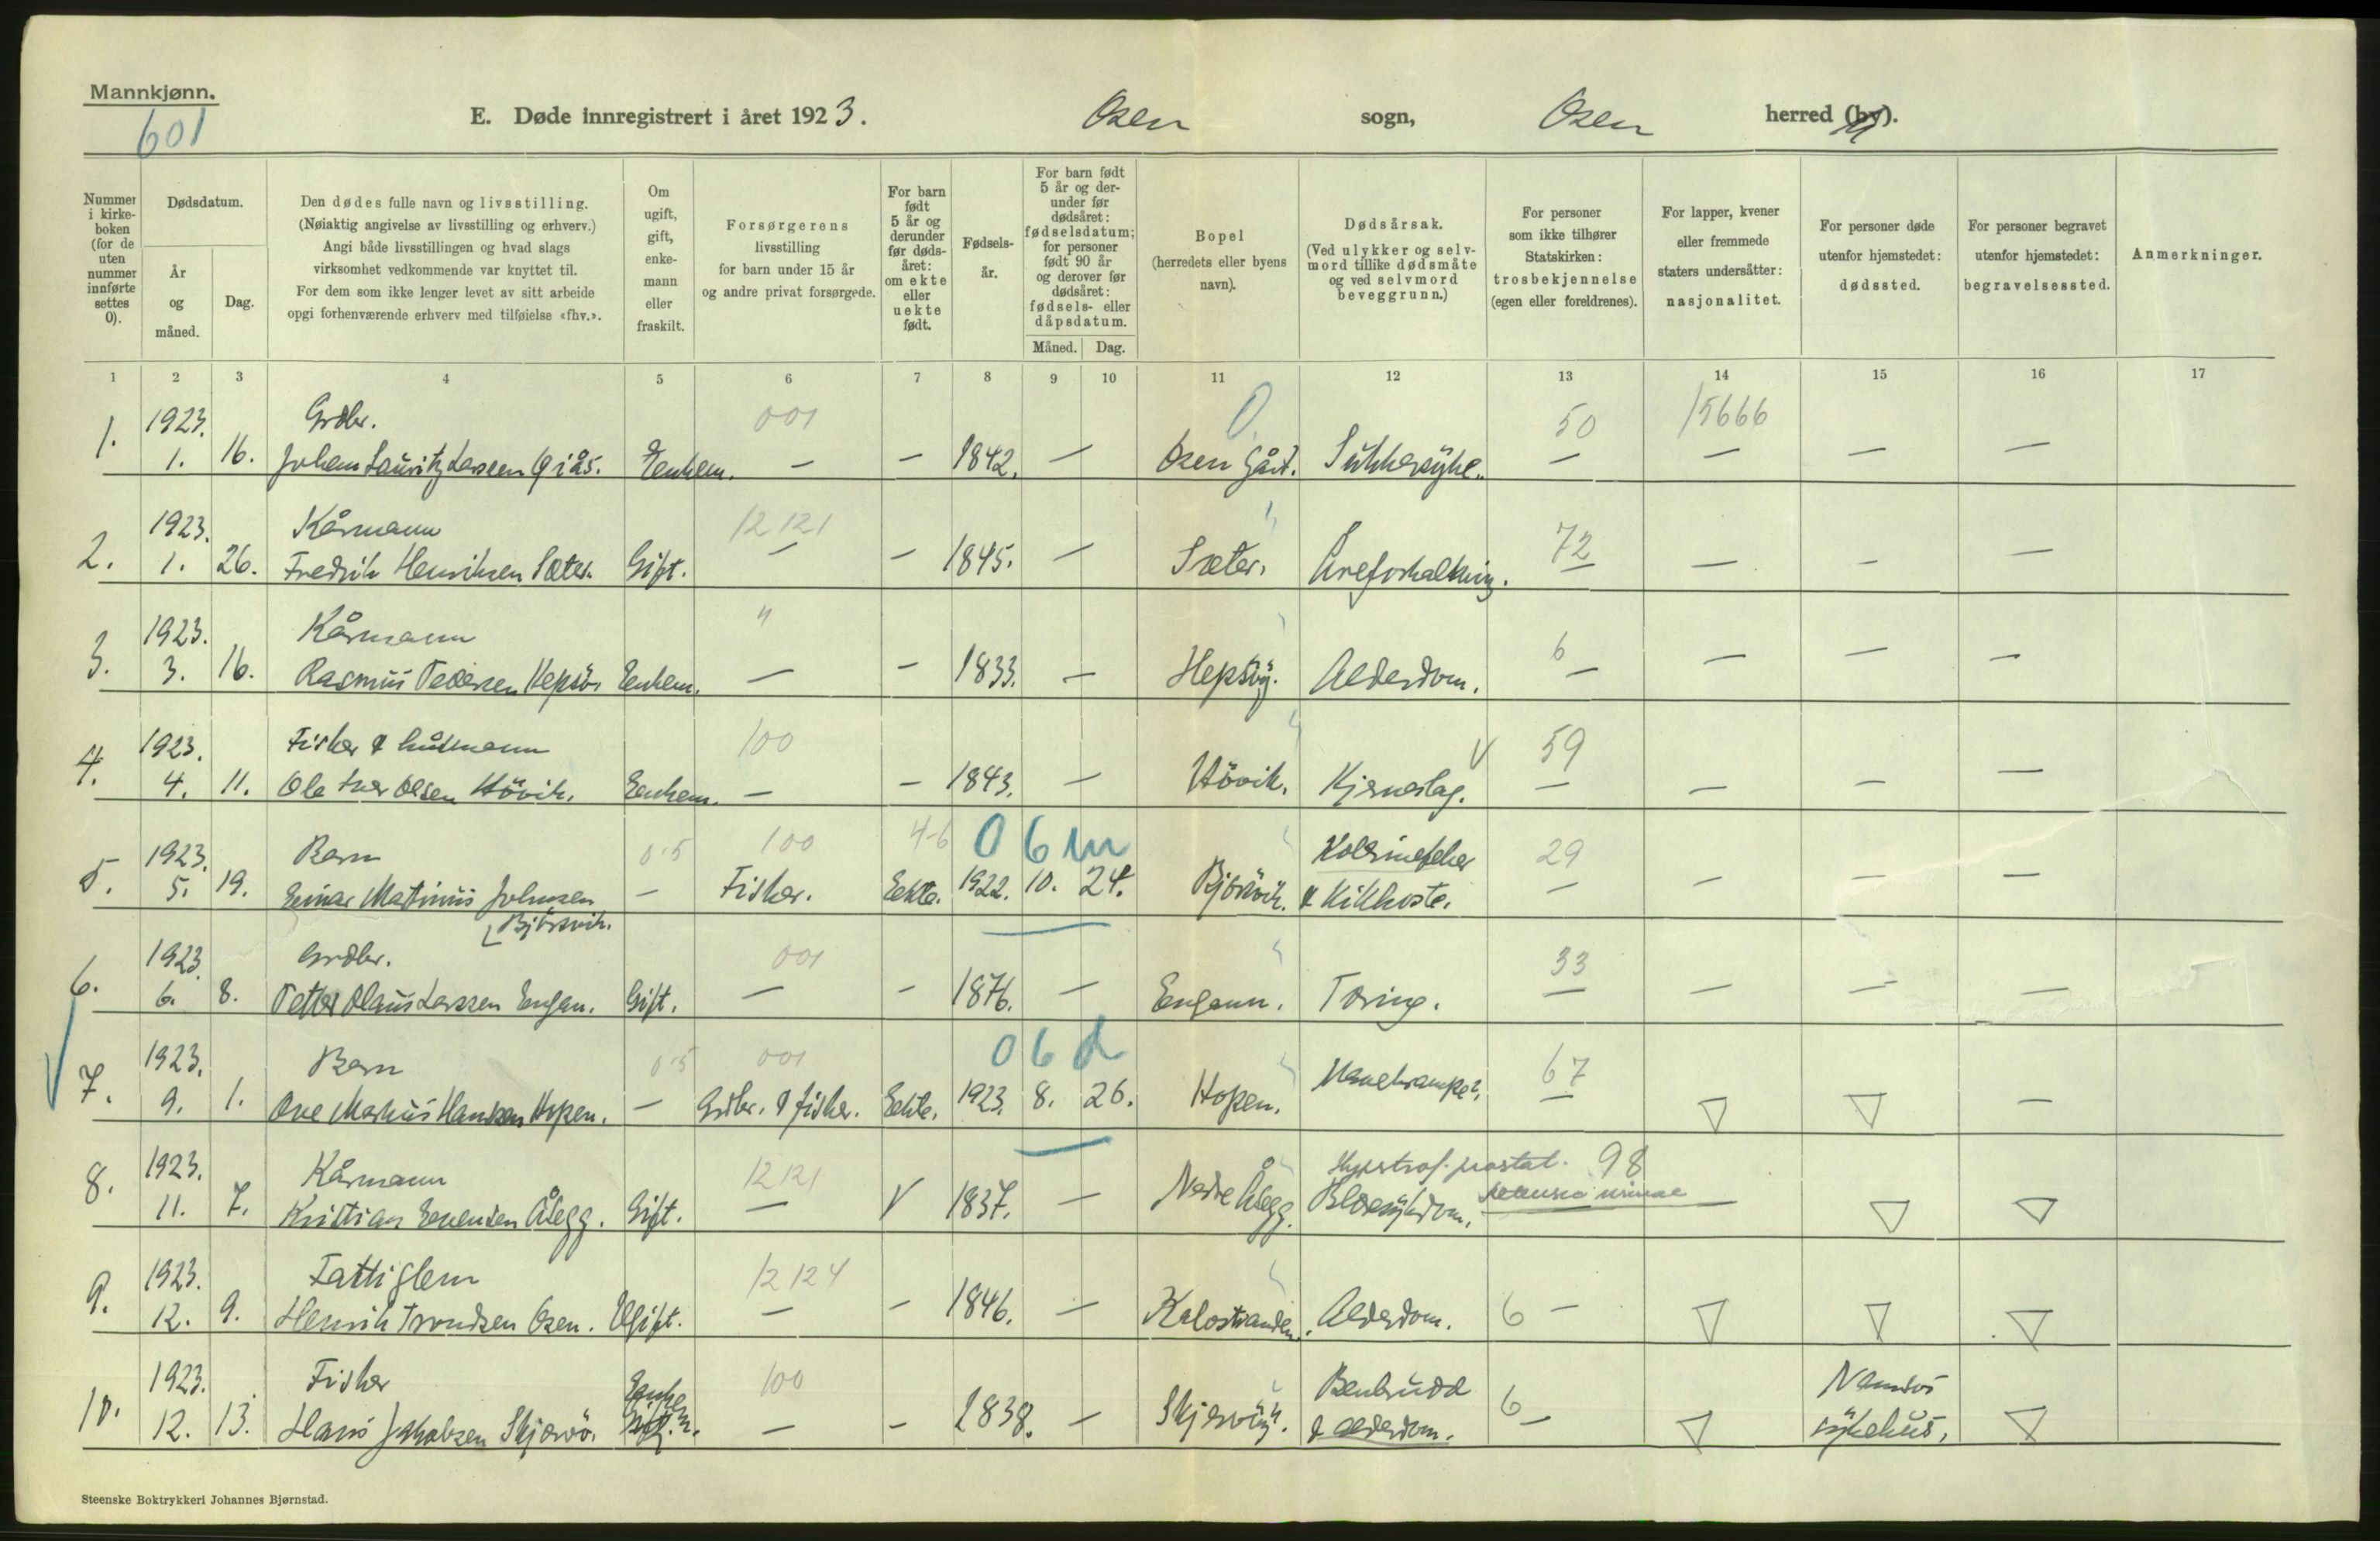 Mannkjønn.
601
E. Døde innregistrert i året 1923. Osen sogn, Osen herred (by).
Nummer i kirkeboken (for de uten nummer innførte settes 0).
Dødsdatum.
År og måned.
Dag.
Den dødes fulle navn og livsstilling.
(Nøiaktig angivelse av livsstilling og erhverv.)
Angi både livsstillingen og hvad slags
virksomhet vedkommende var knyttet til.
For dem som ikke lenger levet av sitt arbeide
opgi forhenværende erhverv med tilføielse «fhv.».
Om ugift, gift, enkemann eller fraskilt.
Forsørgerens livsstilling for barn under 15 år og andre privat forsørgede.
For barn født 5 år og derunder før dødsåret: om ekte eller uekte født.
Fødselsår.
For barn født 5 år og derunder før dødsåret: fødselsdatum; for personer født 90 år og derover før dødsåret: fødsels- eller dåpsdatum.
Måned. Dag.
Bopel (herredets eller byens navn).
Dødsårsak. (Ved ulykker og selvmord tillike dødsmåte og ved selvmord beveggrunn.)
For personer som ikke tilhører Statskirken: trosbekjennelse (egen eller foreldrenes).
For lapper, kvener eller fremmede staters undersåtter: nasjonalitet.
For personer døde utenfor hjemstedet: dødssted.
For personer begravet utenfor hjemstedet: begravelsessted.
Anmerkninger.
1 2 3 4 5 6 7 8 9 10 11 12 13 14 15 16 17
1923. Grdbr. 001 0 50 15666
1. 1. 16. Johan Lauritz Larssen Osen Enkem. — — 1842. — Osen gård. Sukkersyke. — — — —
1923. Kårmann 12121 " 72
2. 1. 26. Fredrik Henriksen Sæter. Gift. — — 1845. — Sæter. Åreforkalkning. — — — —
1923. Kårmann " 6
3. 3. 16. Rasmus Pedersen Hepsö. Enkem. — — 1833. — Hepsöy. Alderdom. — — — —
1923. Fisker & husmann 100 V 59
4. 4. 11. Ole Iver Olsen Hövik. Enkem. — — 1843. — Hövik. Hjerneslag. — — — —
1923. Barn 0-5 100 4-6 0 6 m Kolerinefeber 29
5. 5. 19. Einar Matinius Johnsen — Fisker. Eekte. 1922. 10. 24. Bjórsvik. & Kikhoste. — — — —
Björsvik.
1923. Grdbr. 001 33
6. 6. 8. Petter Olaus Larssen Engan. Gift. — — 1876. — Engann. Tæring. — — — —
1923. Barn 0-5 001 0 6 d 67
7. 9. 1. Ove Markus Hanssen Hopen. — Grdbr. & fisker. Eekte. 1923. 8. 26. Hopen. —
1923. Kårmann 12121 Hypertrof. prostat. 98
8. 11. 7. Kristian Evensen Ålegg. Gift. — V 1837. — Nedre Ålegg. Blæresykdom. retensio urinae —
1923. Fattiglem 12124
9. 12. 9. Henrik Trondsen Osen. Ugift. — — 1846. — Alderdom. 6 —
1923. Fisker Enkem. 100 Benbrudd 6 Namsos
10. 12. 13. Hans Jakobsen Skjærvö. — — 1838. — Skjervöy. & alderdom. — sykehus.
Steenske Boktrykkeri Johannes Bjørnstad.